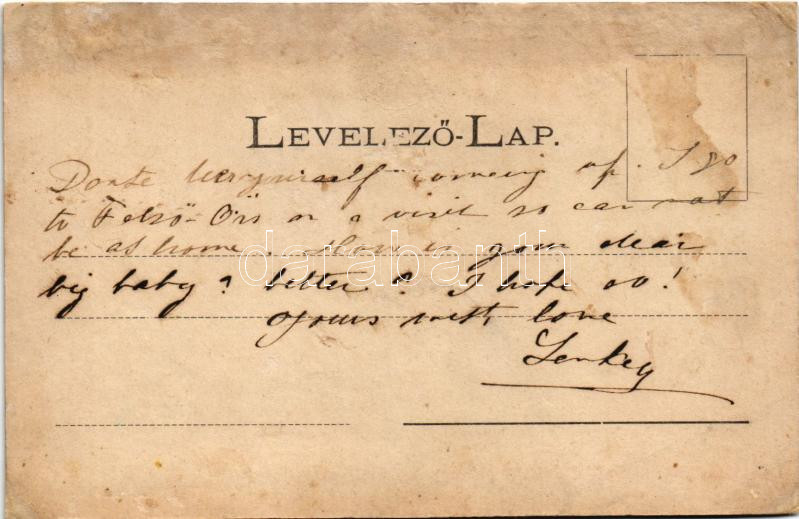 LEVELEZŐ-LAP.
yourself coming up. I go
to Felső-Örs on a visit so can not
be at home. How is your dear
big baby? better? I hope so!
Yours with love
Lenkey
darabanth